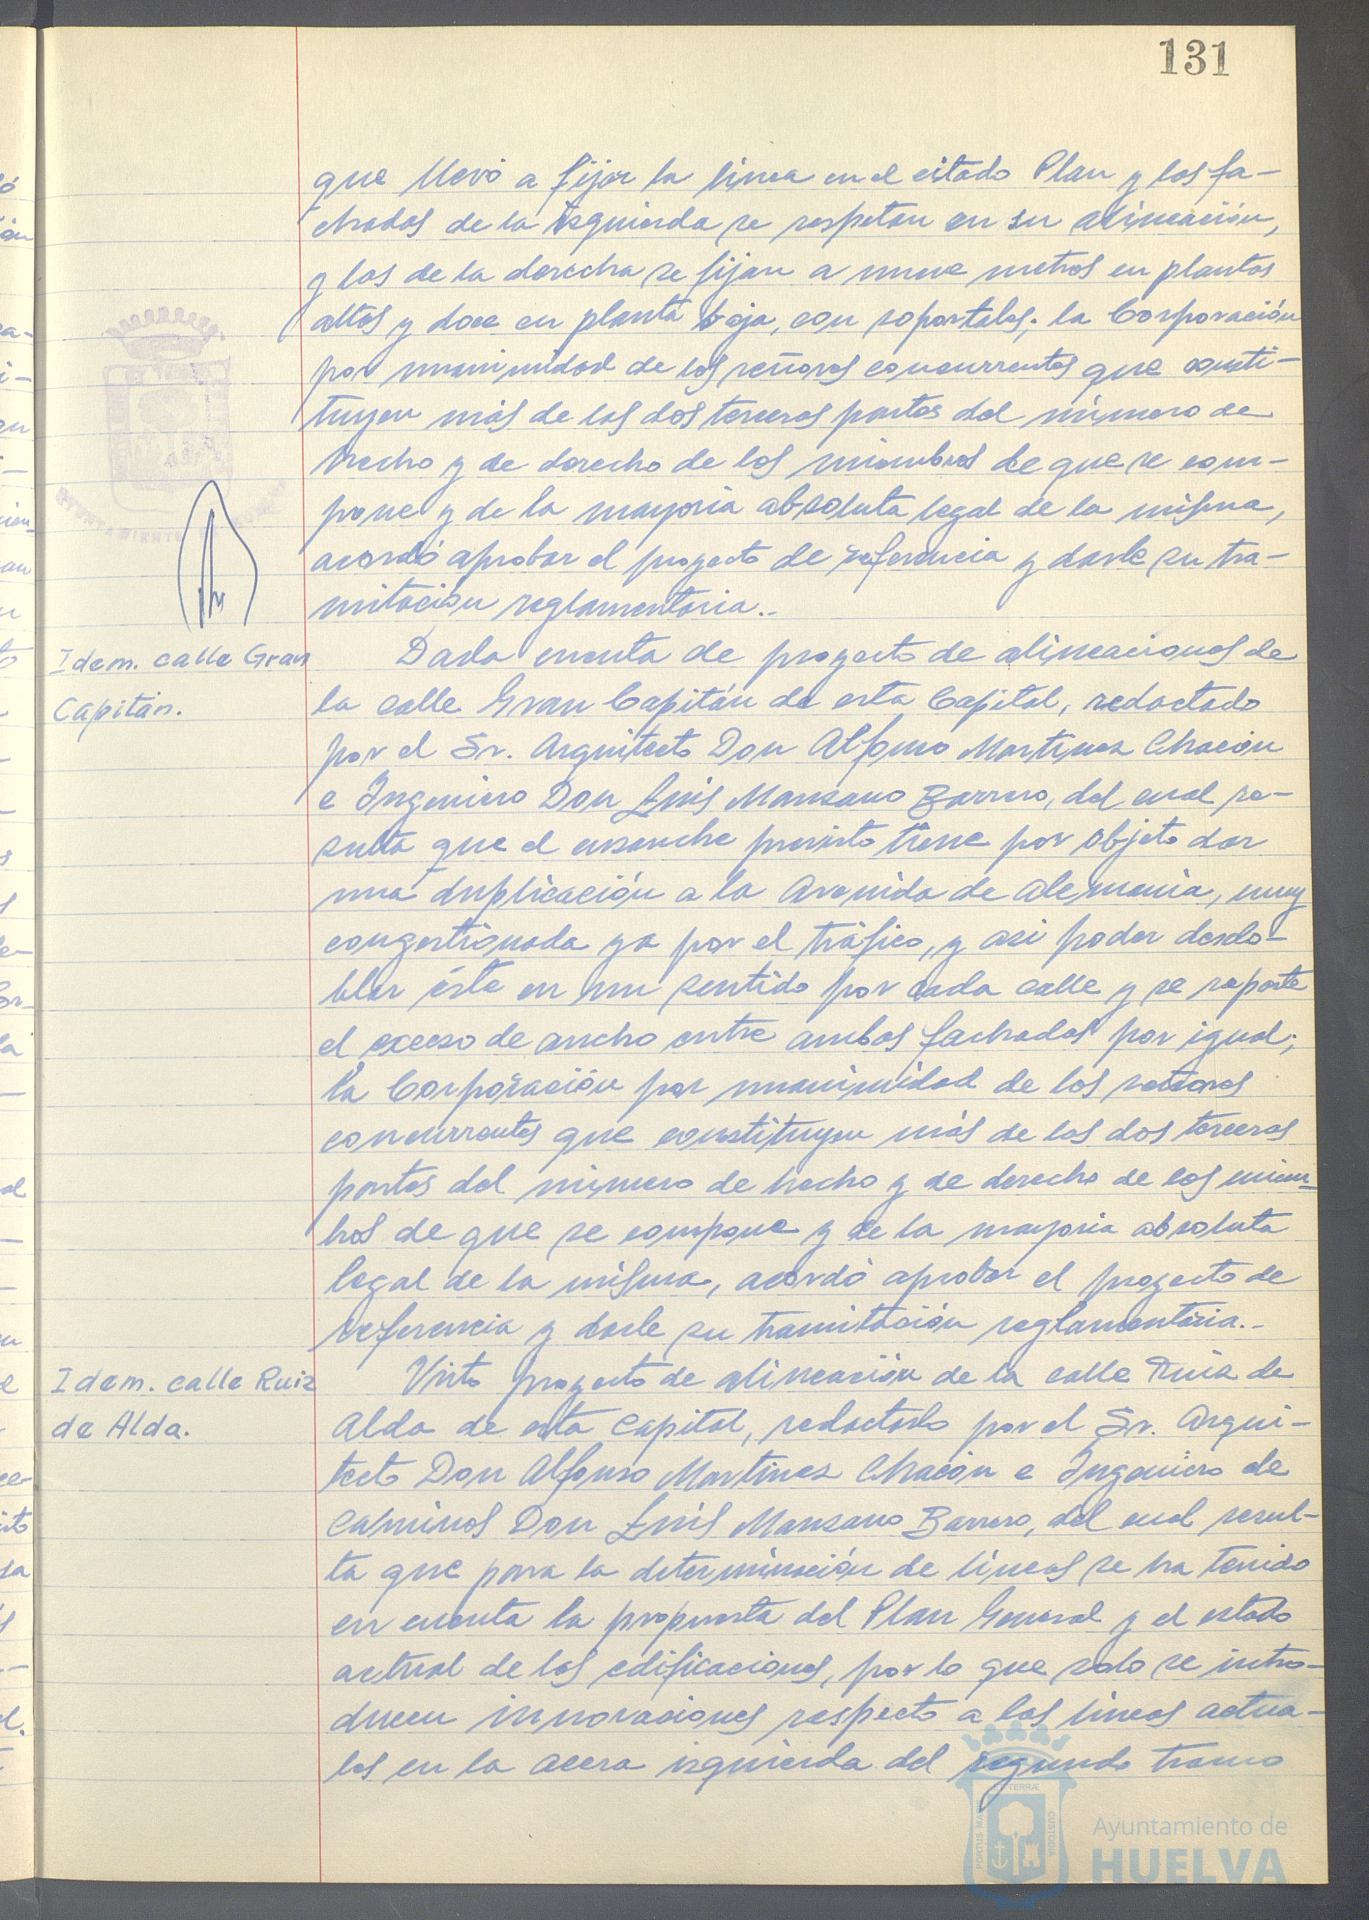 131
que llevó a fijar la línea en el citado Plan y las fa-
chadas de la izquierda se respetan en su alineación,
y las de la derecha se fijan a nueve metros en plantas
altas y doce en planta baja, con soportales; la Corporación
por unanimidad de los señores concurrentes que consti-
tuyen más de las dos terceras partes del número de
hecho y de derecho de los miembros de que se com-
pone y de la mayoría absoluta legal de la misma,
acordó aprobar el proyecto de referencia y darle su tra-
mitación reglamentaria.-
Idem. calle Gran
Capitán.
Dada cuenta de proyecto de alineaciones de
la calle Gran Capitán de esta Capital, redactado
por el Sr. Arquitecto Don Alfonso Martínez Chacón
e Ingeniero Don Luis Manzano Barrero, del cual re-
sulta que el ensanche previsto tiene por objeto dar
una duplicación a la Avenida de Alemania, muy
congestionada ya por el tráfico, y asi poder desdo-
blar éste en un sentido por cada calle y se reparte
el exceso de ancho entre ambas fachadas por igual;
la Corporación por unanimidad de los señores
concurrentes que constituyen más de las dos terceras
partes del número de hecho y de derecho de los miem-
bros de que se compone y de la mayoría absoluta
legal de la misma, acordó aprobar el proyecto de
referencia y darle su tramitación reglamentaria.-
Idem. calle Ruiz
de Alda.
Visto proyecto de alineación de la calle Ruiz de
Alda de esta Capital, redactado por el Sr. Arqui-
tecto Don Alfonso Martínez Chacón e Ingeniero de
Caminos Don Luis Manzano Barrero, del cual resul-
ta que para la determinación de líneas se ha tenido
en cuenta la propuesta del Plan General y el estado
actual de las edificaciones, por lo que solo se intro-
ducen innovaciones respecto a las líneas actua-
les en la acera izquierda del segundo tramo
PORTUS MARIS
ET TERRÆ
CUSTODIA
Ayuntamiento de
HUELVA